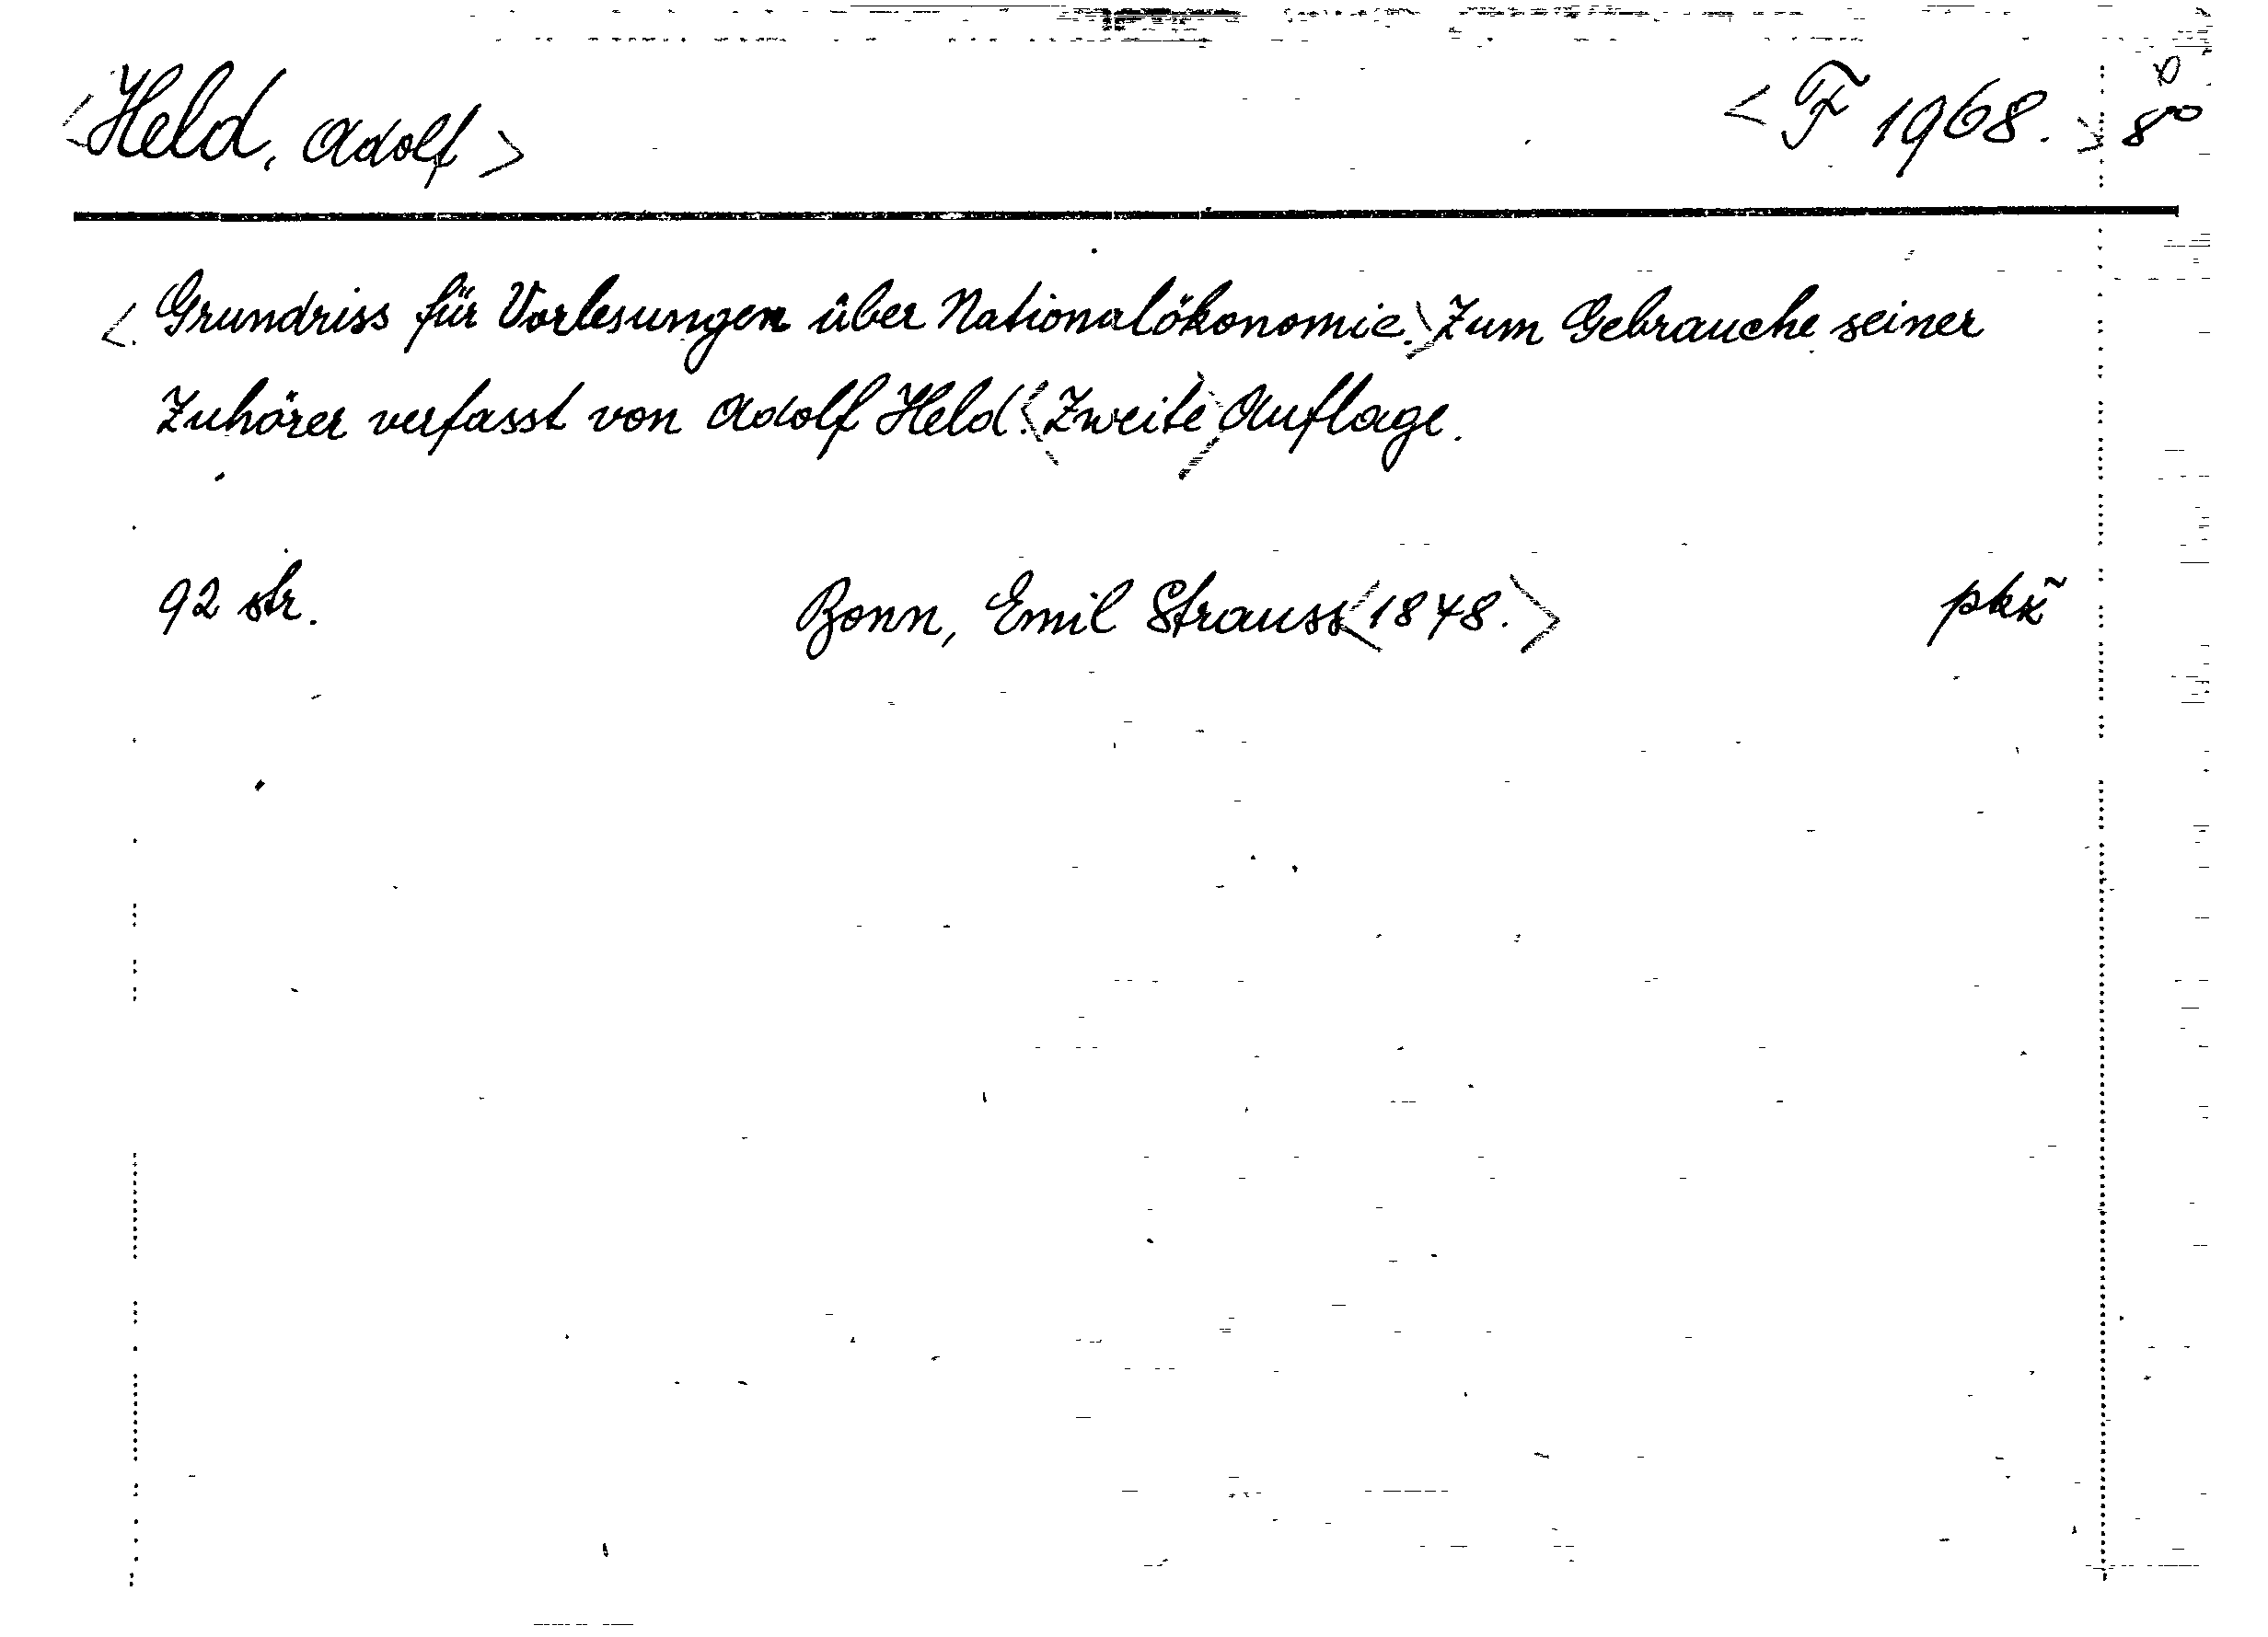 <Held, Adolf> <F 1968.> 8°
<Grundriss für Vorlesungen über Nationalökonomie.> Zum Gebrauche seiner
Zuhörer verfasst von Adolf Held. <Zweite> Auflage.
92 str. Bonn, Emil Strauss <1848.>